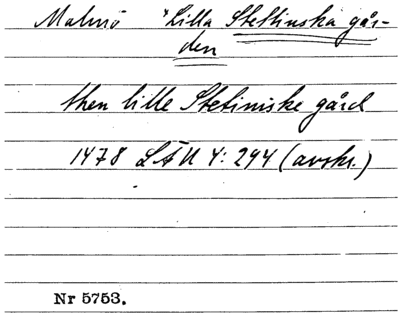 Malmö *Lilla Stettinska går-
den
then lille Stetiniske gård
1478 LÄU 4: 294 (avskr.)
Nr 5753.